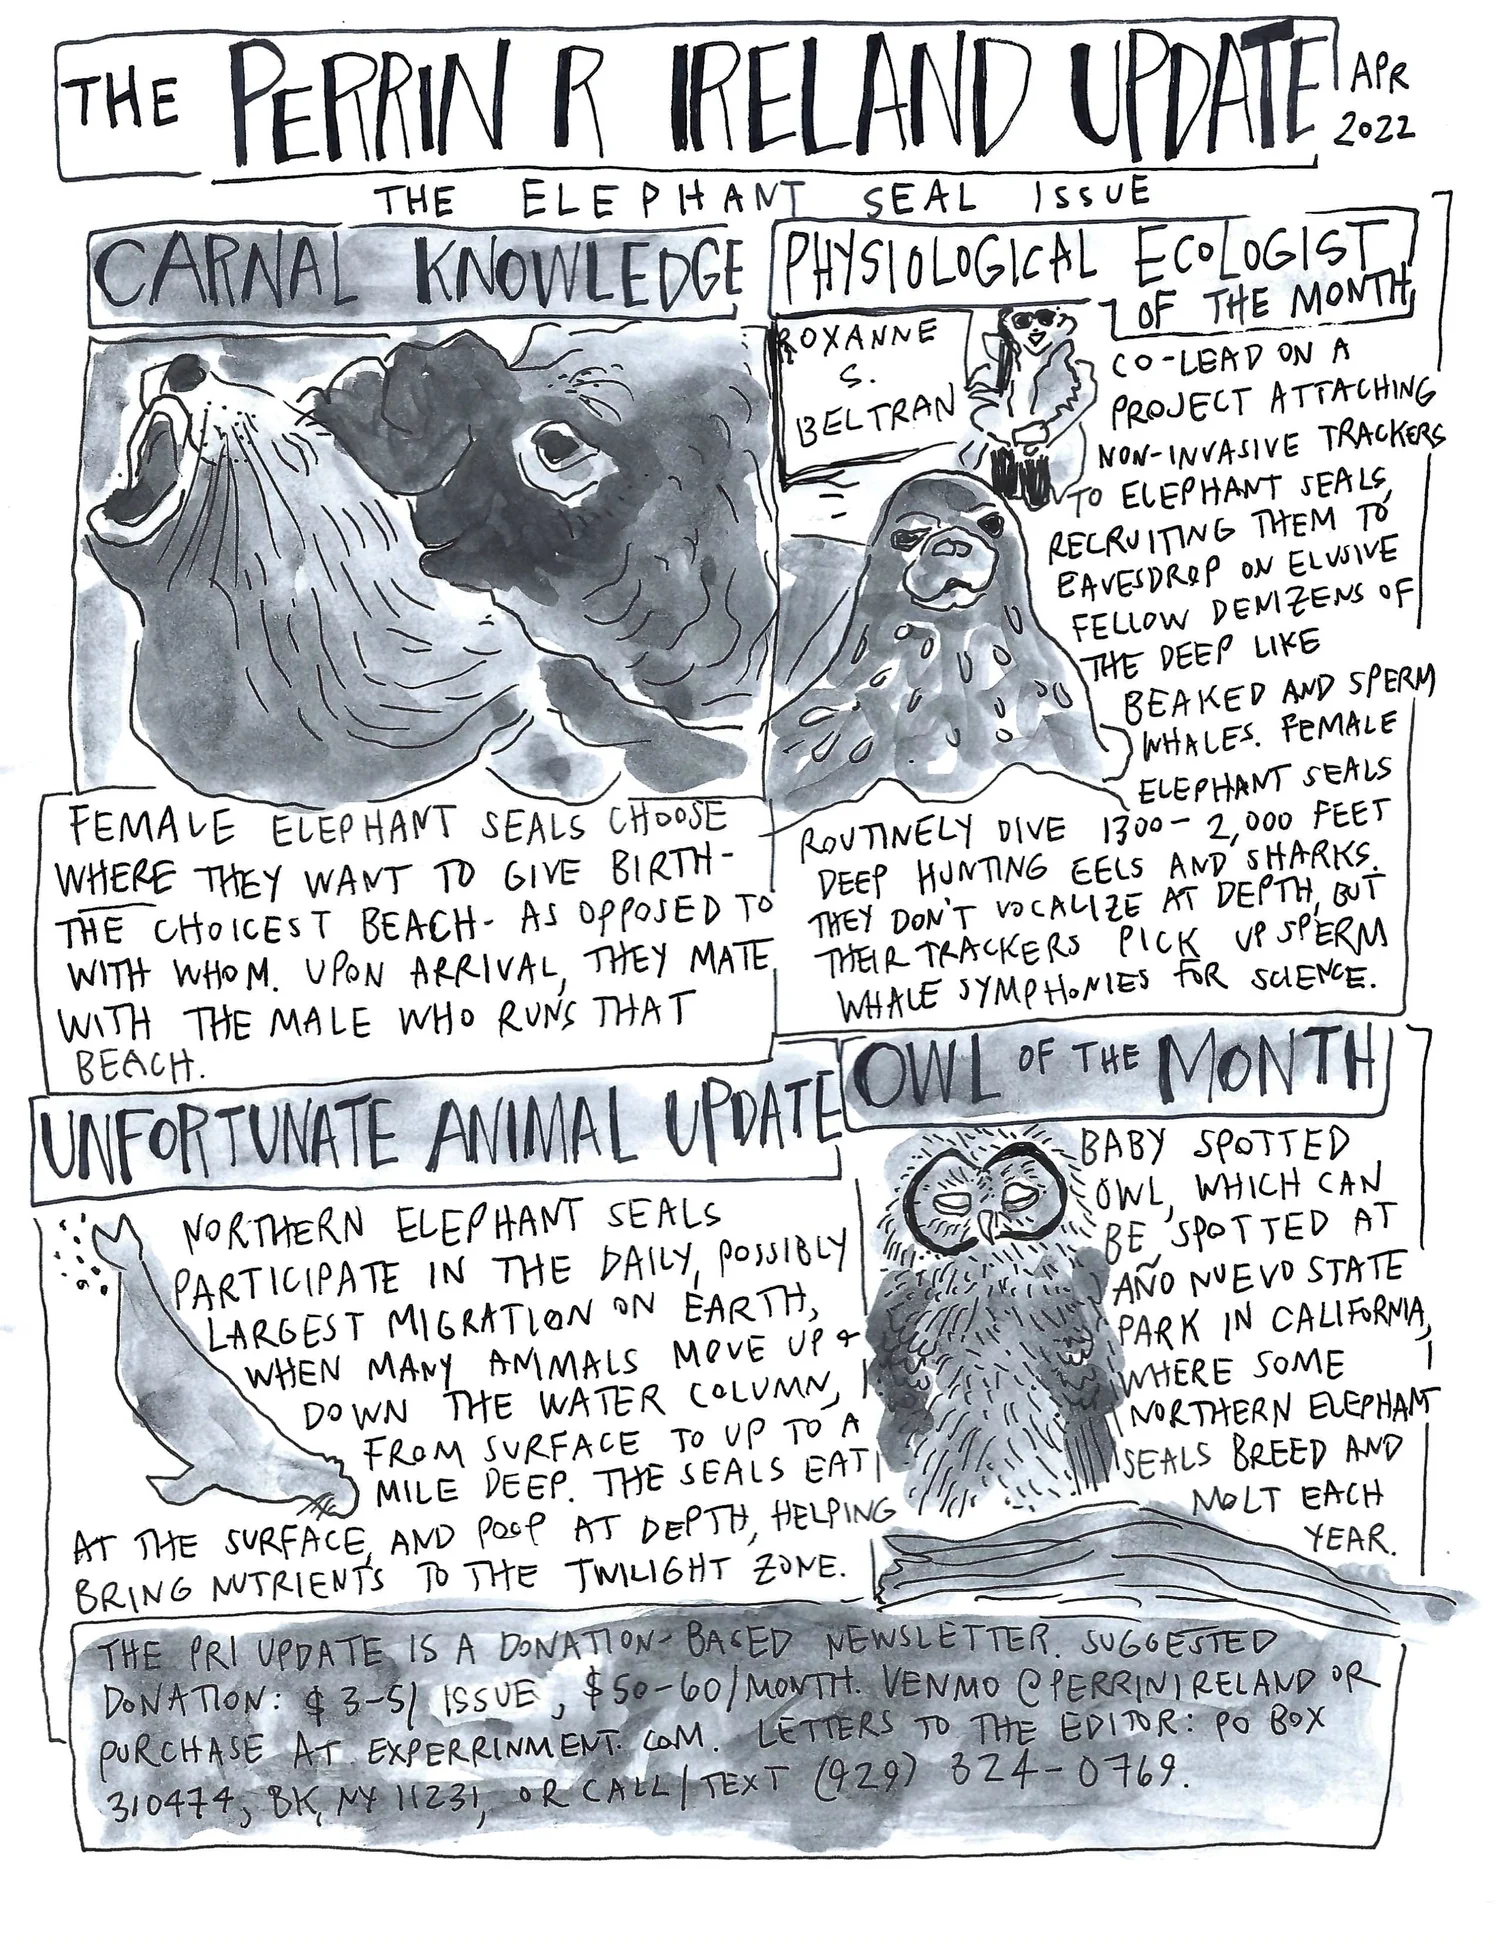 THE PERRIN R IRELAND UPDATE
APR
2022
THE ELEPHANT SEAL ISSUE
CARNAL KNOWLEDGE
FEMALE ELEPHANT SEALS CHOOSE
WHERE THEY WANT TO GIVE BIRTH-
THE CHOICEST BEACH- AS OPPOSED TO
WITH WHOM. UPON ARRIVAL, THEY MATE
WITH THE MALE WHO RUNS THAT
BEACH.
PHYSIOLOGICAL ECOLOGIST
OF THE MONTH
ROXANNE
S.
BELTRAN
CO-LEAD ON A
PROJECT ATTACHING
NON-INVASIVE TRACKERS
TO ELEPHANT SEALS,
RECRUITING THEM TO
EAVESDROP ON ELUSIVE
FELLOW DENIZENS OF
THE DEEP LIKE
BEAKED AND SPERM
WHALES. FEMALE
ELEPHANT SEALS
ROUTINELY DIVE 1300-2,000 FEET
DEEP HUNTING EELS AND SHARKS.
THEY DON'T VOCALIZE AT DEPTH, BUT
THEIR TRACKERS PICK UP SPERM
WHALE SYMPHONIES FOR SCIENCE.
UNFORTUNATE ANIMAL UPDATE
NORTHERN ELEPHANT SEALS
PARTICIPATE IN THE DAILY, POSSIBLY
LARGEST MIGRATION ON EARTH,
WHEN MANY ANIMALS MOVE UP &
DOWN THE WATER COLUMN,
FROM SURFACE TO UP TO A
MILE DEEP. THE SEALS EAT
AT THE SURFACE, AND POOP AT DEPTH, HELPING
BRING NUTRIENTS TO THE TWILIGHT ZONE.
OWL OF THE MONTH
BABY SPOTTED
OWL, WHICH CAN
BE SPOTTED AT
AÑO NUEVO STATE
PARK IN CALIFORNIA,
WHERE SOME
NORTHERN ELEPHANT
SEALS BREED AND
MOLT EACH
YEAR.
THE PRI UPDATE IS A DONATION-BASED NEWSLETTER. SUGGESTED
DONATION: $3-5/ ISSUE, $50-60/MONTH. VENMO @PERRINIRELAND OR
PURCHASE AT EXPERRINMENT.COM. LETTERS TO THE EDITOR: PO BOX
310474, BK, NY 11231, OR CALL/TEXT (929) 324-0769.